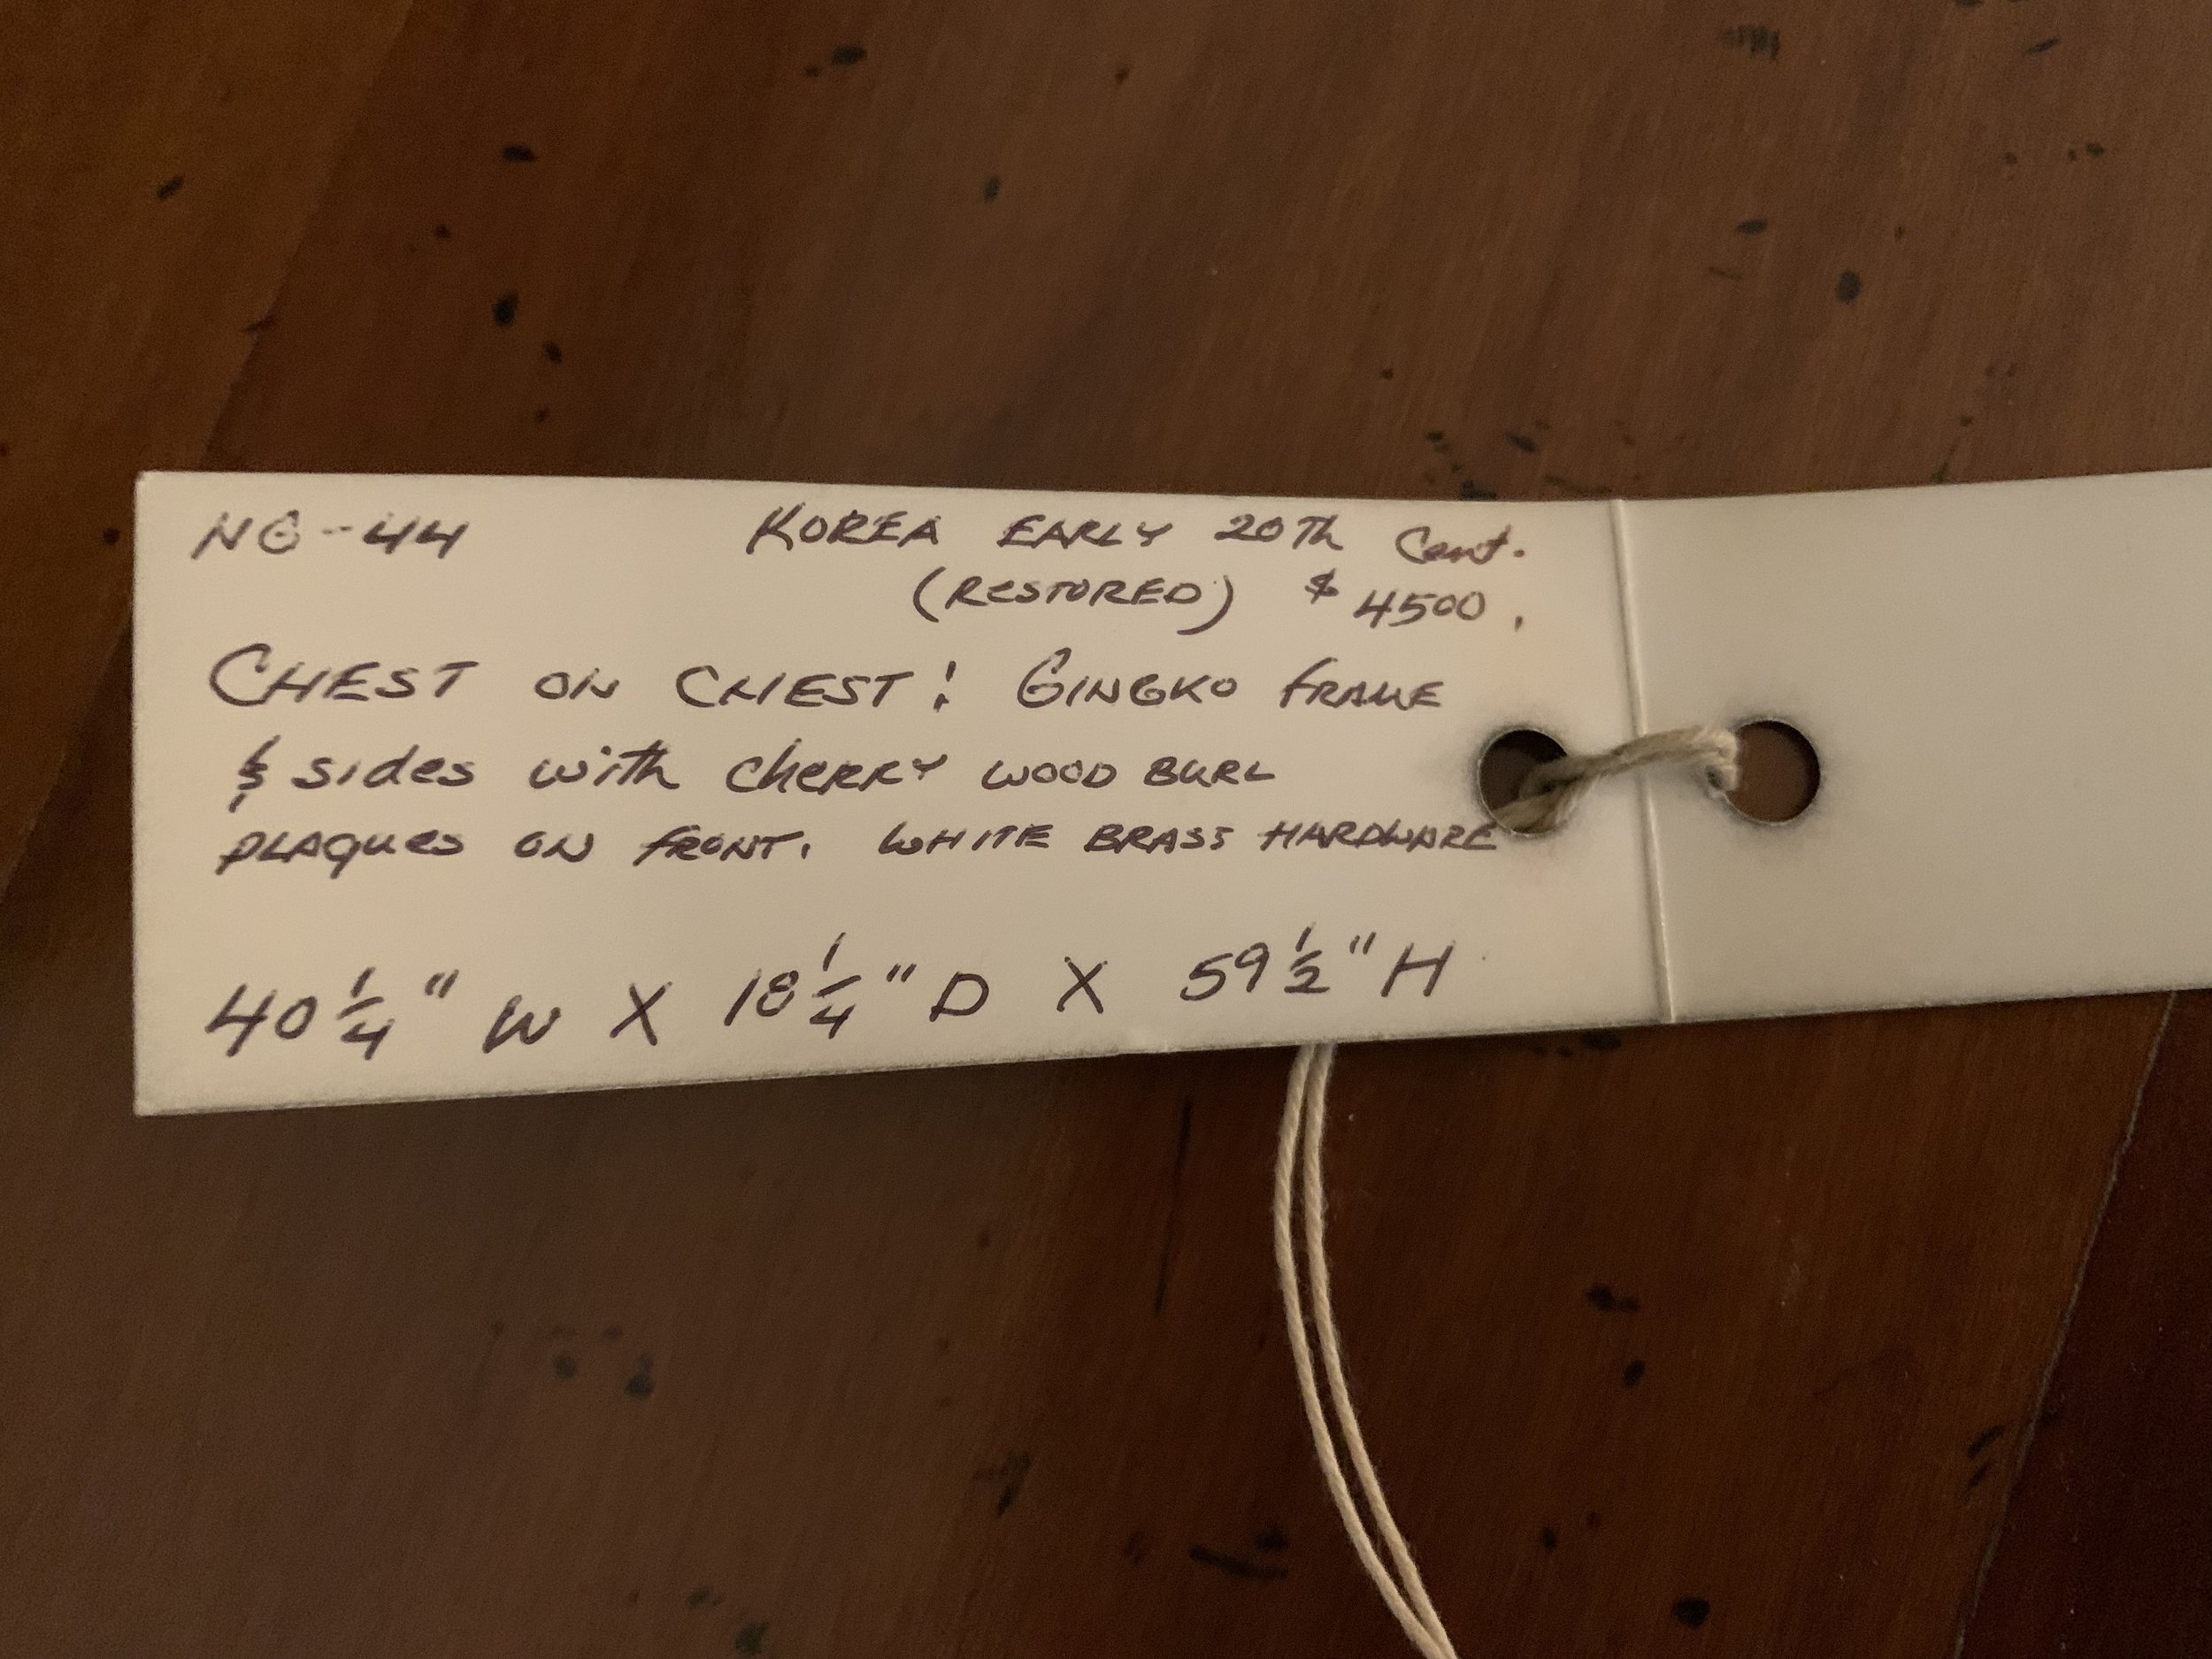 NG-44 KOREA EARLY 20Th Cent.
(RESTORED) $4500.
CHEST ON CHEST: GINGKO FRAME
& sides with cherry wood BURL
PLAQUES ON FRONT. WHITE BRASS HARDWARE
40 1/4" W X 18 1/4" D X 59 1/2" H